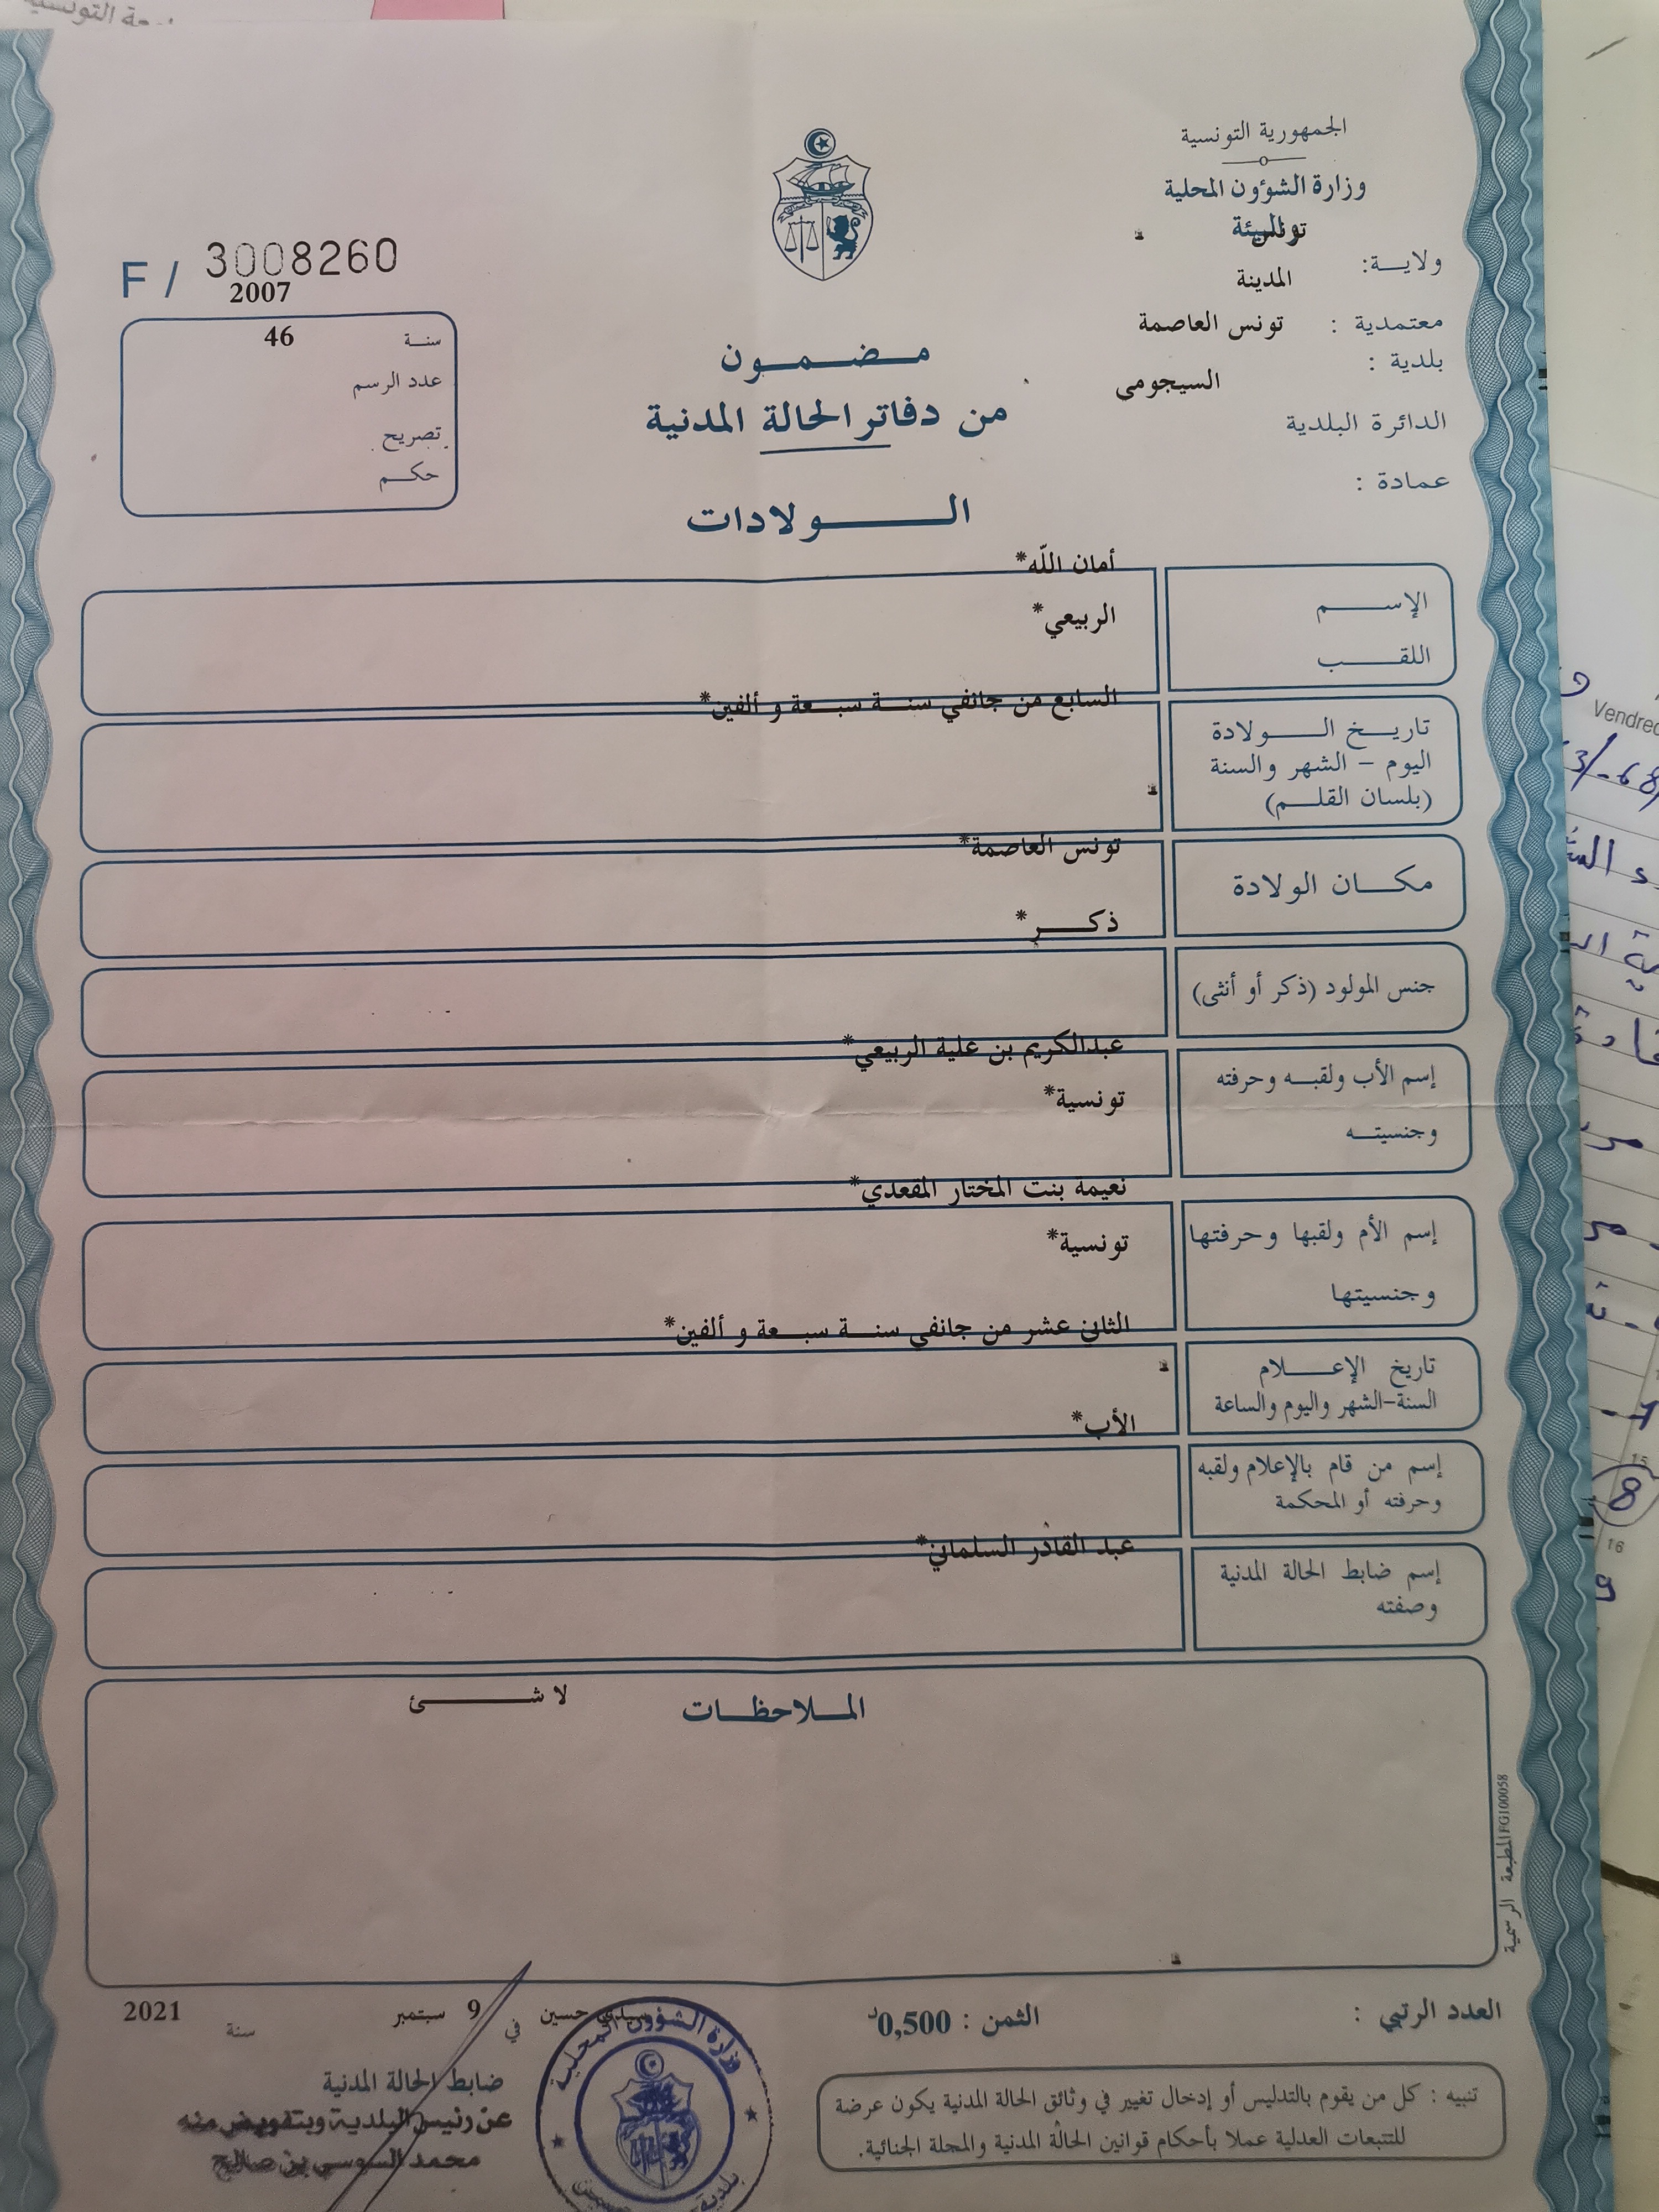 الجمهورية التونسية
وزارة الشؤون المحلية
والبيئة
ولايــة: تونس
المدينة
معتمدية : تونس العاصمة
بلدية :
السيجومي
الدائرة البلدية
عمادة :
F / 3008260
2007
سنــة 46
عدد الرسم
تصريح
حكــم
مـضـمـون
من دفاتر الحالة المدنية
الـــولادات
أمان اللّه*
الإســـم
الربيعي*
اللقـــب
السابع من جانفي سنــة سبــعة و ألفين*
تاريـــخ الـــولادة
اليوم – الشهر والسنة
(بلسان القلــم)
تونس العاصمة*
مكـــان الولادة
ذكـــر*
جنس المولود (ذكر أو أنثى)
عبدالكريم بن علية الربيعي*
إسم الأب ولقبــه وحرفته
تونسية*
وجنسيتــه
نعيمة بنت المختار المقعدي*
إسم الأم ولقبها وحرفتها
تونسية*
وجنسيتها
الثاني عشر من جانفي سنــة سبــعة و ألفين*
تاريخ الإعـــلام
السنة–الشهر واليوم والساعة
الأب*
إسم من قام بالإعلام ولقبه
وحرفته أو المحكمة
عبد القادر السلماني*
إسم ضابط الحالة المدنية
وصفته
الملاحظــات
لا شـــئ
المطبعة الرسمية FG100058
العدد الرتبي :
الثمن : 0,500د
سيدي حسين في 9 سبتمبر سنة 2021
ضابط الحالة المدنية
عن رئيس البلدية وبتفويض منه
محمد السوسي بن صالح
وزارة الشؤون المحلية
بلدية
تنبيه : كل من يقوم بالتدليس أو إدخال تغيير في وثائق الحالة المدنية يكون عرضة
للتتبعات العدلية عملا بأحكام قوانين الحالة المدنية والمجلة الجنائية.
15
8
16